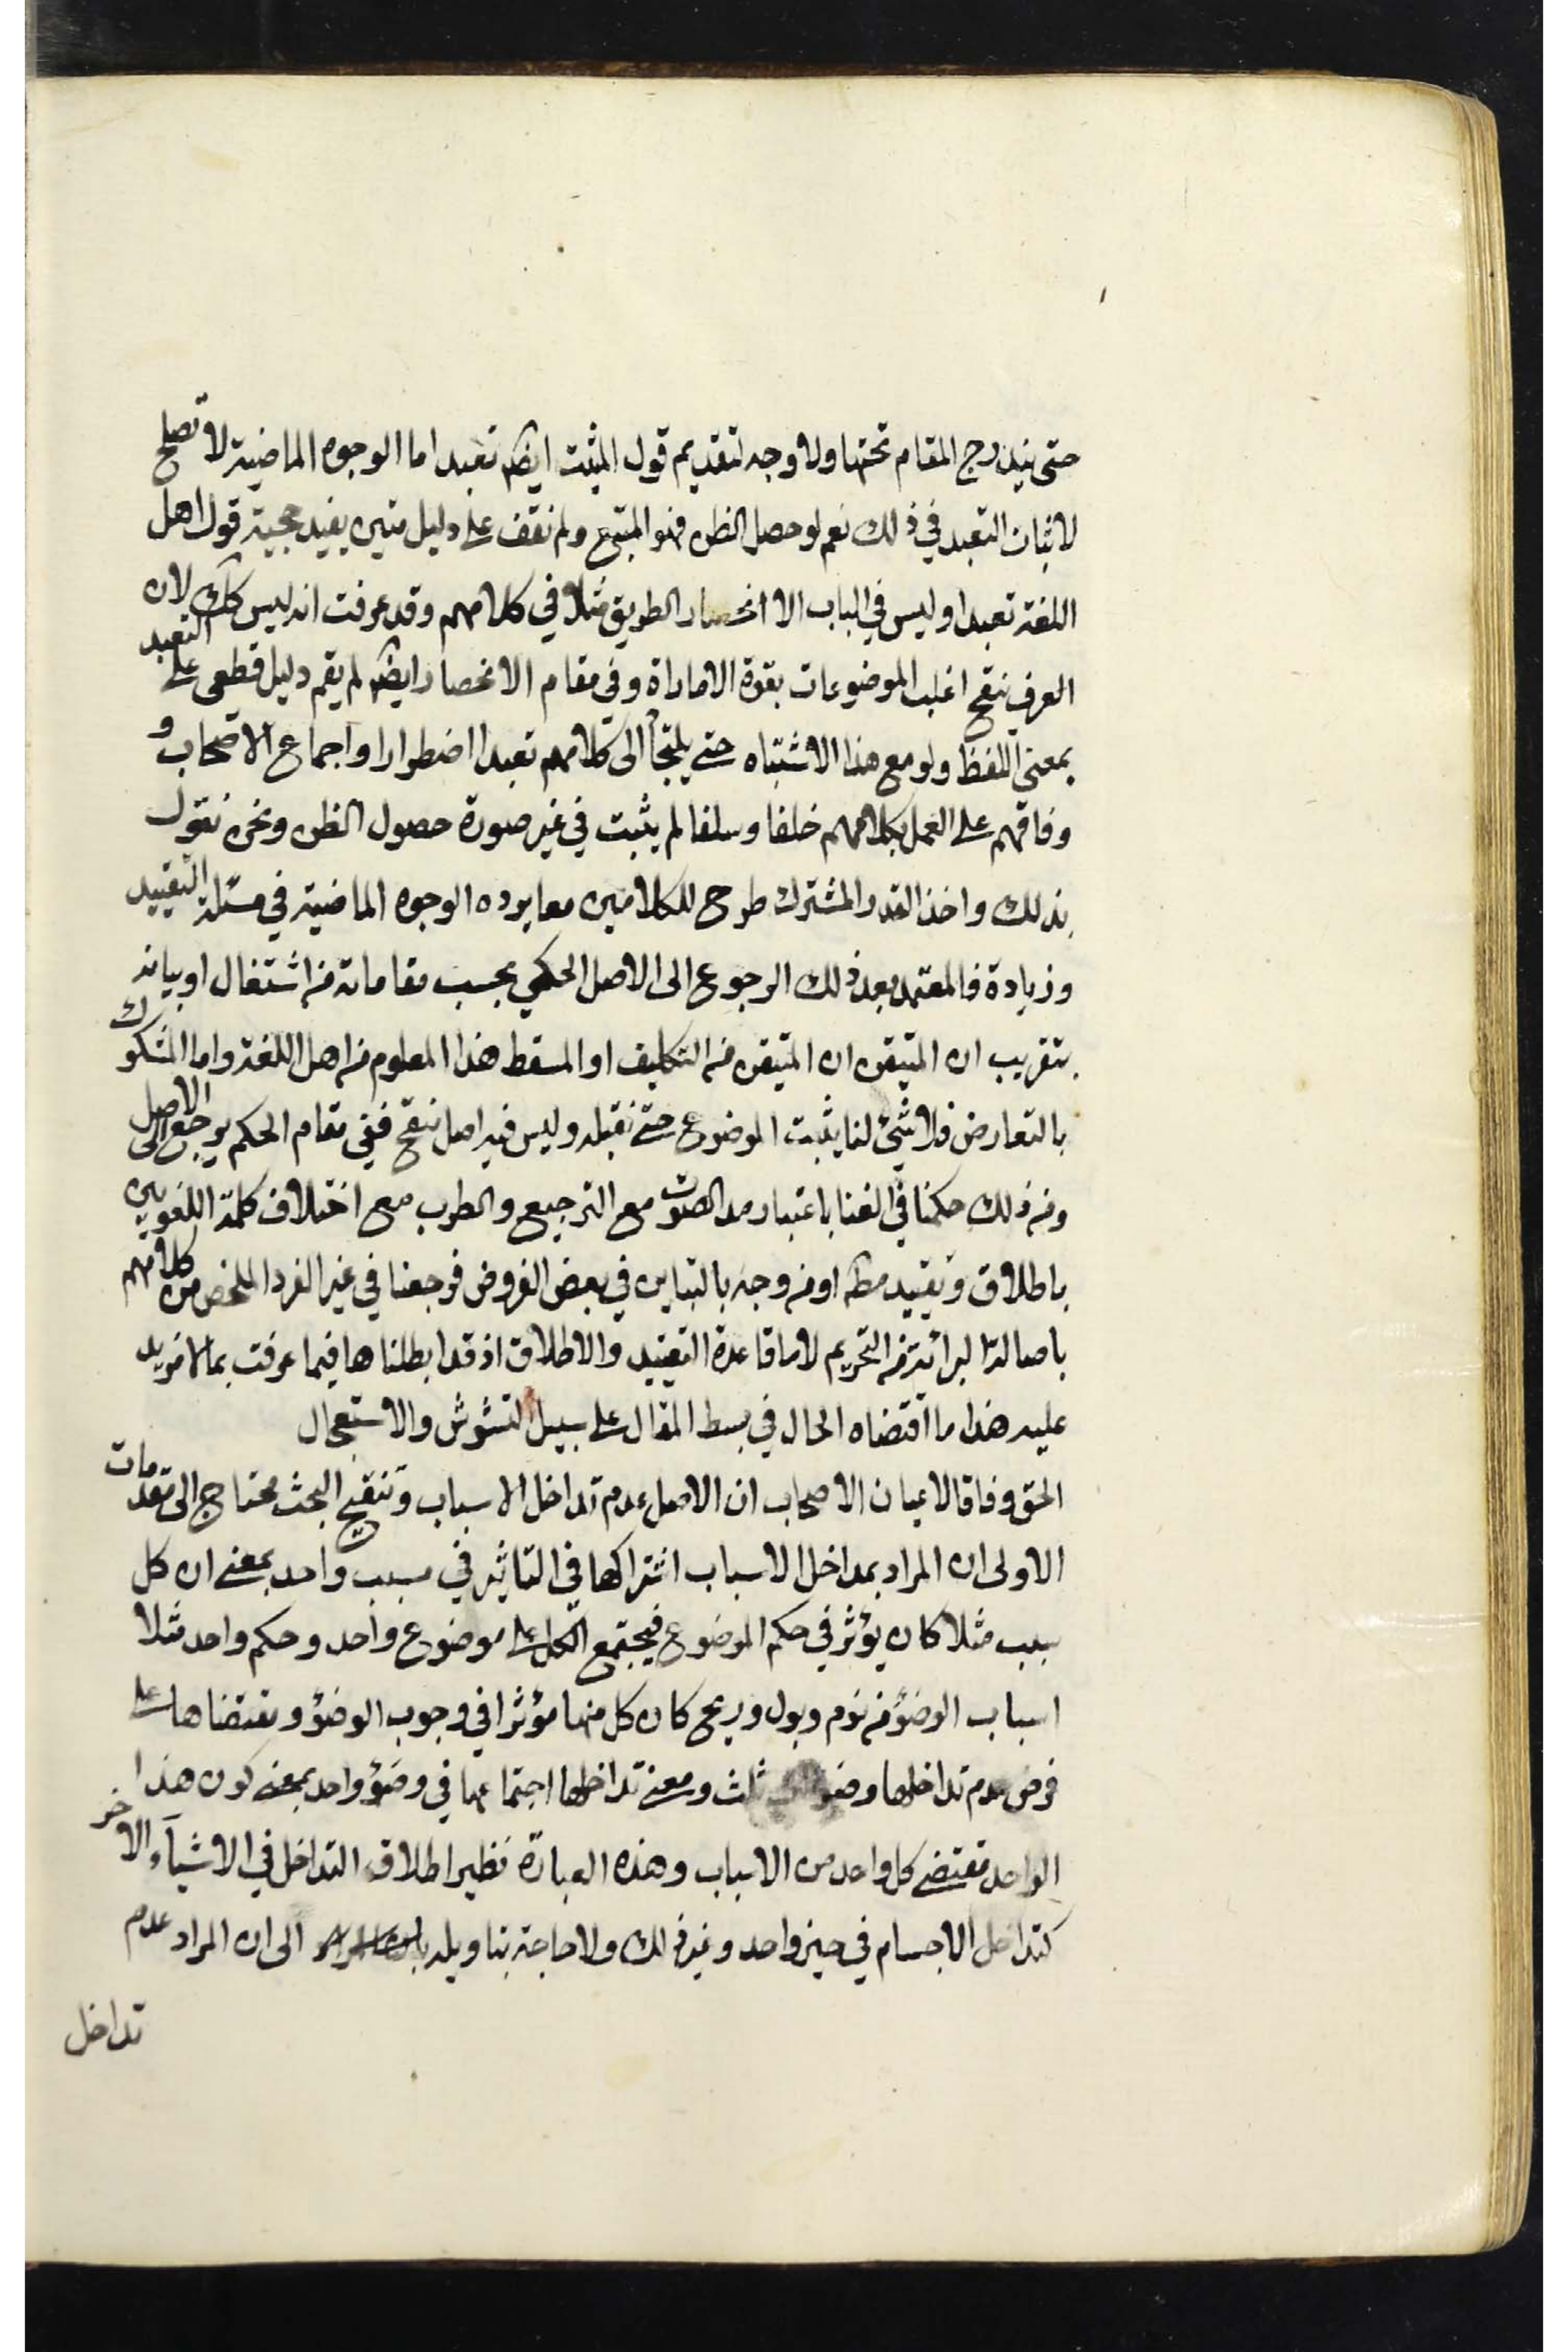 حتى يندرج المقام تحتها ولا وجه لتقديم قول المثبت ايضا تعبدا اما الوجوه الماضية لا تصلح
لاثبات التعبد في ذلك نعم لو حصل الظن فهو المتبع ولم نقف على دليل متين يفيد حجية قول اهل
اللغة تعبدا وليس في الباب الا انحصار الطريق مثلا في كلامهم وقد عرفت انه ليس كك لان
العرف ينقح اغلب الموضوعات بقوة الاماراة وفي مقام الانحصار ايضا لم يقم دليل قطعى على التعبد
بمعنى اللفظ ولو مع هذا الاشتباه حتى يلتجأ الى كلامهم تعبدا اضطرارا واجماع الاصحاب و
وفاقهم على العمل بكلامهم خلفا وسلفا لم يثبت في غير صورة حصول الظن ونحن نقول
بذلك واخذ القدر المشترك طرح للكلامين معا يرده الوجوه الماضية في مسئلة التقييد
وزيادة فالمعتمد بعد ذلك الرجوع الى الاصل الحكمي بحسب مقاماته من اشتغال او بيانه
بتقريب ان المتيقن ان المتيقن من التكليف او المسقط هذا المعلوم من اهل اللغة واما المشكوك
بالتعارض فلا شئ لنا يثبت الموضوع حتى نقبله وليس فيه اصل ينقح ففي مقام الحكم يرجع الى الاصل
ومن ذلك حكمنا في الغنا باعتبار مد الصوت مع الترجيع والطرب مع اختلاف كلمة اللغويين
باطلاق وتقييد مطم او من وجه بالتباين في بعض الفروض فرجعنا في غير الفرد الملخص من كلامهم
باصالة البرائة من التحريم لاما قاعدة التقييد والاطلاق اذ قد ابطلناها فيما عرفت بما لا مزيد
عليه هذا ما اقتضاه الحال في بسط المقال على سبيل التشوش والاستعجال
الحق وفاقا لاعيان الاصحاب ان الاصل عدم تداخل الاسباب وتنقيح البحث محتاج الى مقدمات
الاولى ان المراد بمداخل الاسباب اشتراكها في التاثير في مسبب واحد بمعنى ان كل
سبب مثلا كان يؤثر في حكم الموضوع فيجتمع الكل على موضوع واحد وحكم واحد مثلا
اسباب الوضؤ من نوم وبول وريح كان كل منها مؤثرا في وجوب الوضؤ ومقتضاها على
فرض عدم تداخلها ثلث ومعنى تداخلها اجتماعها في وضؤ واحد بمعنى كون هذا
الواحد مقتضى كل واحد من الاسباب وهذه العبارة نظير اطلاق التداخل في الاشياء الاخر
كتداخل الاجسام في حيز واحد وغير ذلك ولا حاجة بتاويله الى ان المراد عدم
تداخل